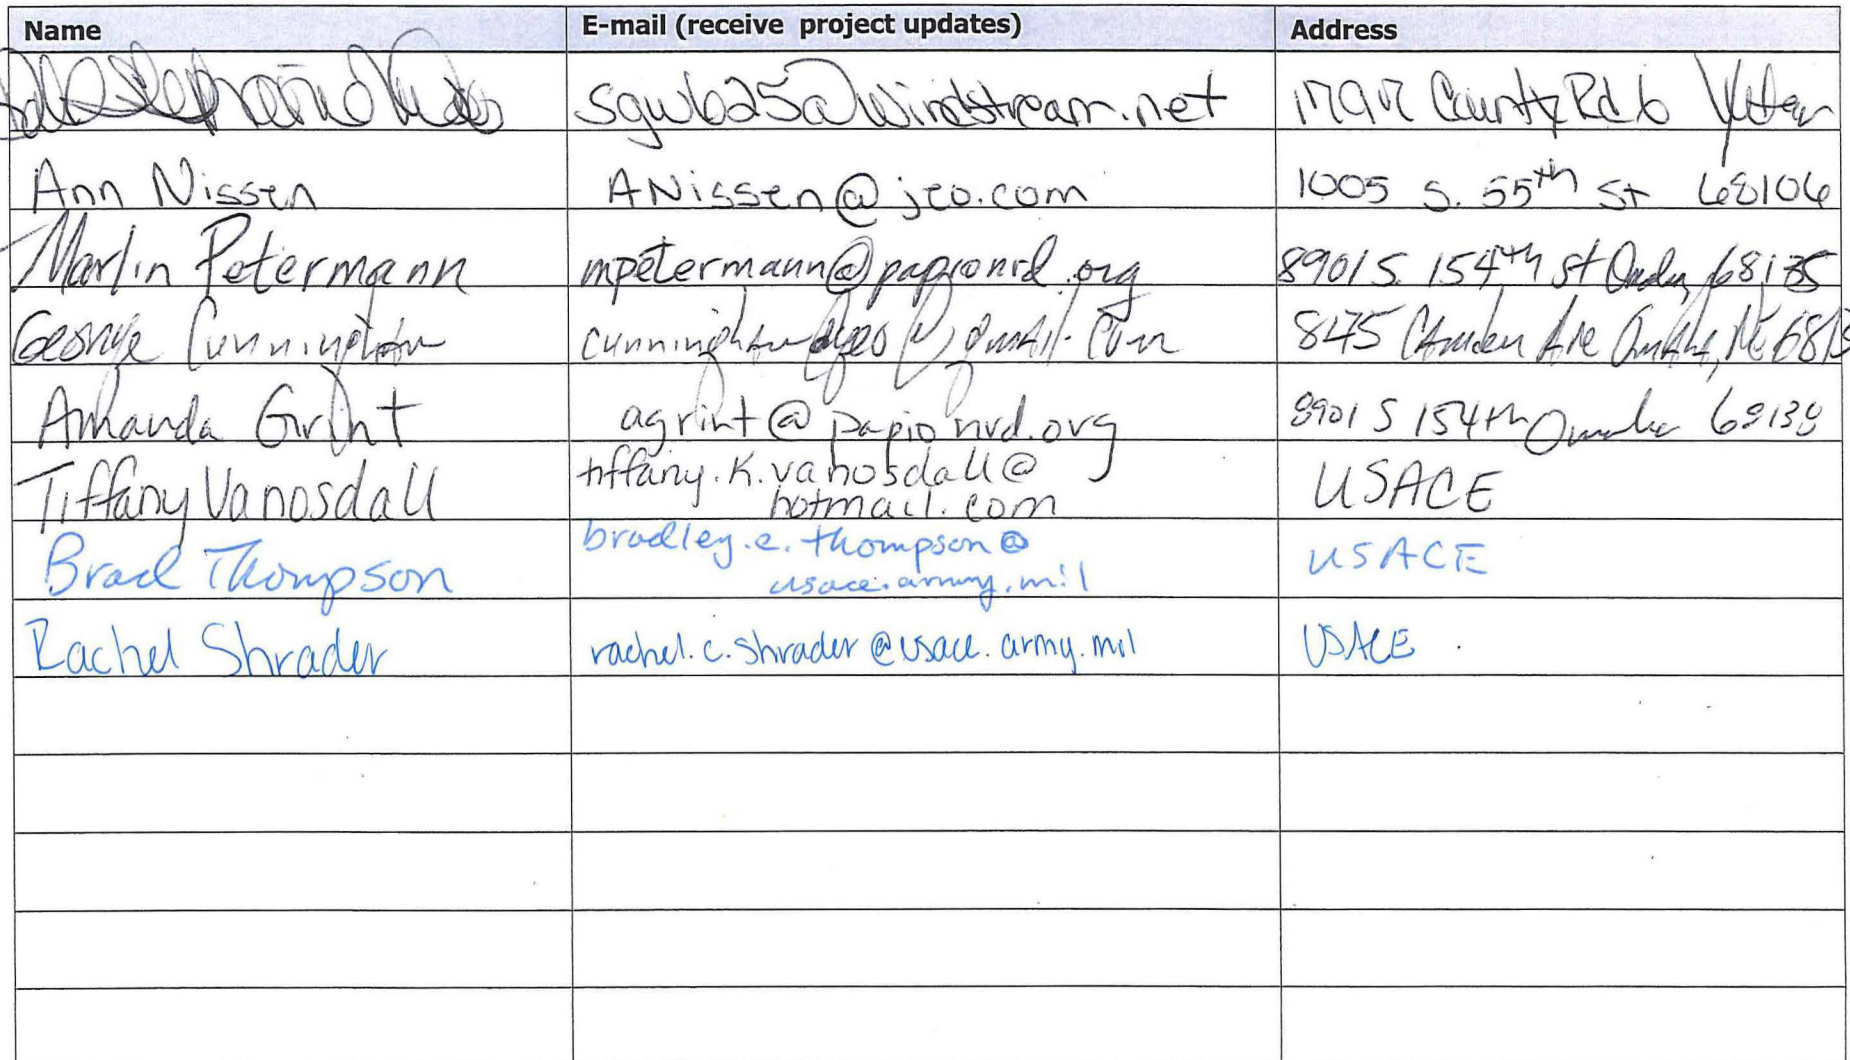 Name E-mail (receive project updates) Address
Stephanie sgwb25@windstream.net 1797 County Rd 6 Yutan
Ann Nissen ANissen@jeo.com 1005 S. 55th St 68106
Marlin Petermann mpetermann@papionrd.org 8901 S. 154th St Omaha, 68135
George Cunningham Ave Omaha, NE
Amanda Grint agrint@papionrd.org 8901 S 154th Omaha 68138
Tiffany Vanosdall tiffany.K.vanosdall@
hotmail.com USACE
Brad Thompson bradley.e.thompson@
usace.army.mil USACE
Rachel Shrader rachel.c.shrader@usace.army.mil USACE